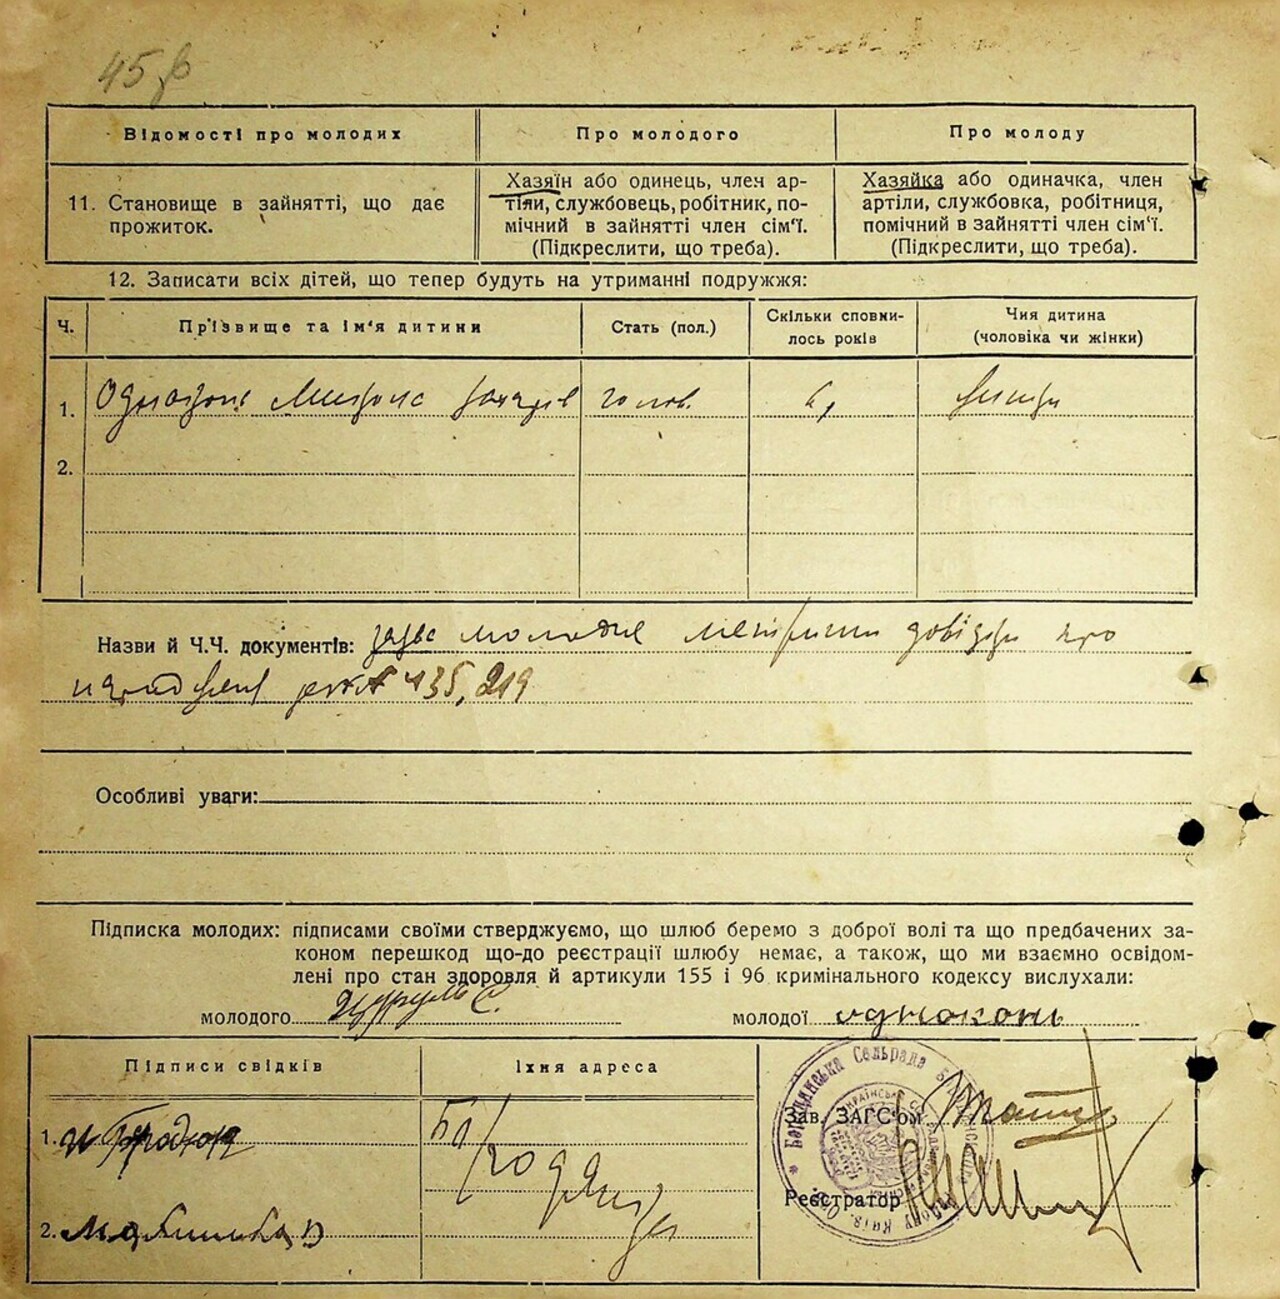 45
Відомості про молодих
Про молодого
Про молоду
11. Становище в зайнятті, що дає
прожиток.
Хазяїн або одинець, член ар-
тіли, службовець, робітник, по-
мічний в зайнятті член сім'ї.
(Підкреслити, що треба).
Хазяйка або одиначка, член
артіли, службовка, робітниця,
помічний в зайнятті член сім'ї.
(Підкреслити, що треба).
12. Записати всіх дітей, що тепер будуть на утриманні подружжя:
Ч.
Прізвище та ім'я дитини
Стать (пол.)
Скільки сповни-
лось років
Чия дитина
(чоловіка чи жінки)
1.
чолов.
2.
Назви й Ч.Ч. документів: молодие довідки про
435, 219
Особливі уваги:
Підписка молодих: підписами своїми стверджуємо, що шлюб беремо з доброї волі та що предбачених за-
коном перешкод що-до реєстрації шлюбу немає, а також, що ми взаємно освідом-
лені про стан здоровля й артикули 155 і 96 кримінального кодексу вислухали:
молодого
молодої одноконь
Підписи свідків
Їхня адреса
1.
Бородянка
2.
Бородянська Сельрада
Зав. ЗАГС'ом
Реєстратор